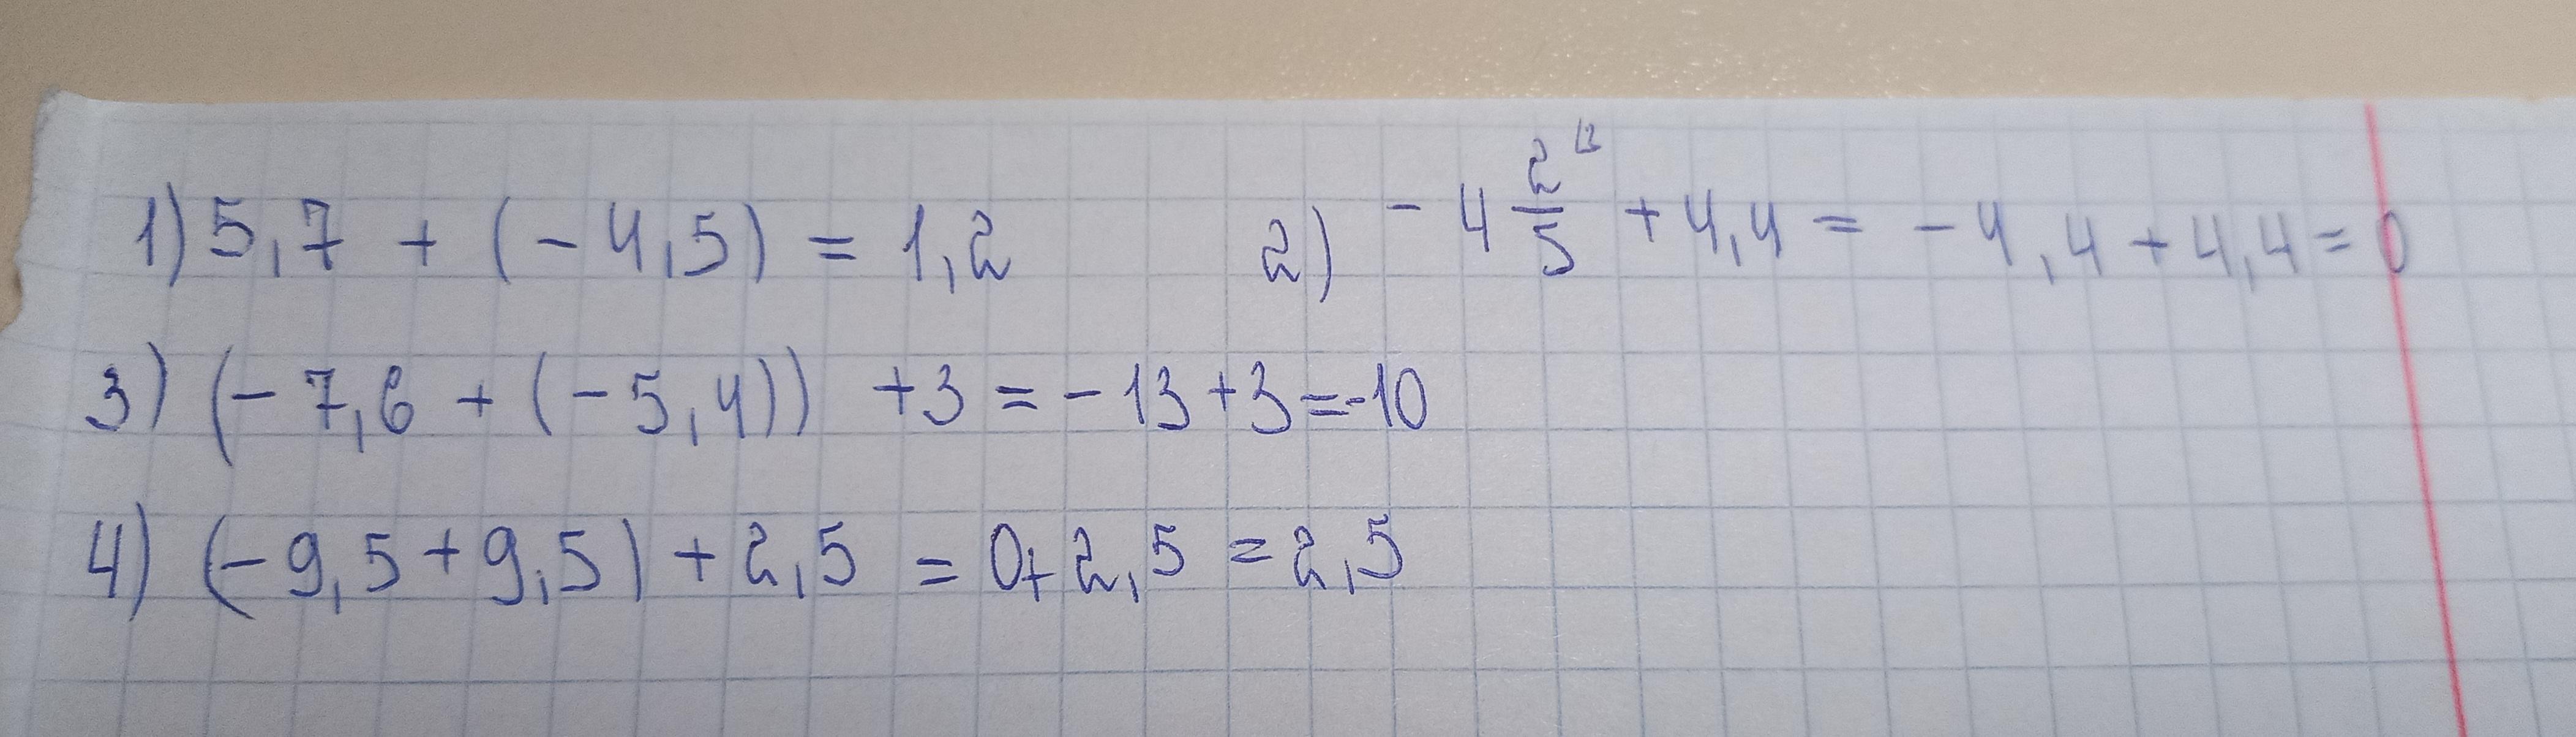 1) 5,7 + (-4,5) = 1,2    2) -4 2/5 + 4,4 = -4,4 + 4,4 = 0
3) (-7,6 + (-5,4)) + 3 = -13 + 3 = -10
4) (-9,5 + 9,5) + 2,5 = 0 + 2,5 = 2,5